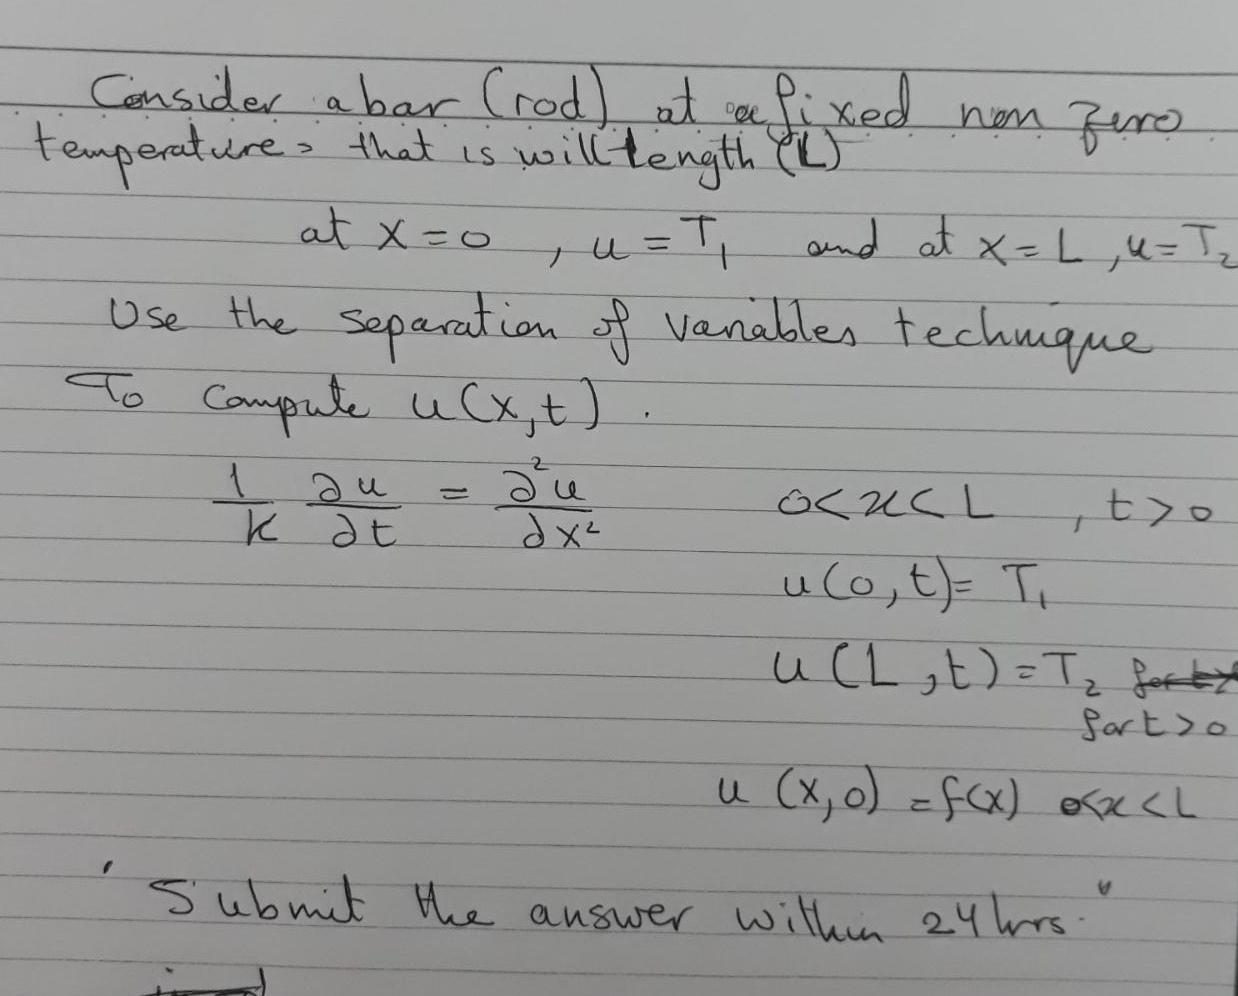 Consider a bar (rod) at a fixed non zero
temperature, that is will length (L)
at x = 0 , u = T₁ and at x = L , u = T₂
Use the separation of variables technique
To compute u(x,t) .
1/K ∂u/∂t = ∂²u/∂x² 0<x<L , t>0
u(0,t)= T₁
u(L,t)=T₂
for t>0
u (x,0) = f(x) 0<x<L
"Submit the answer within 24 hrs."